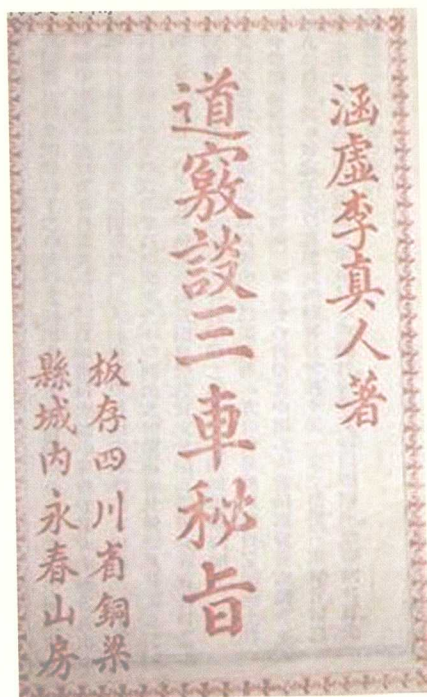 涵虛李真人著
道竅談三車秘旨
板存四川省銅梁
縣城內永春山房